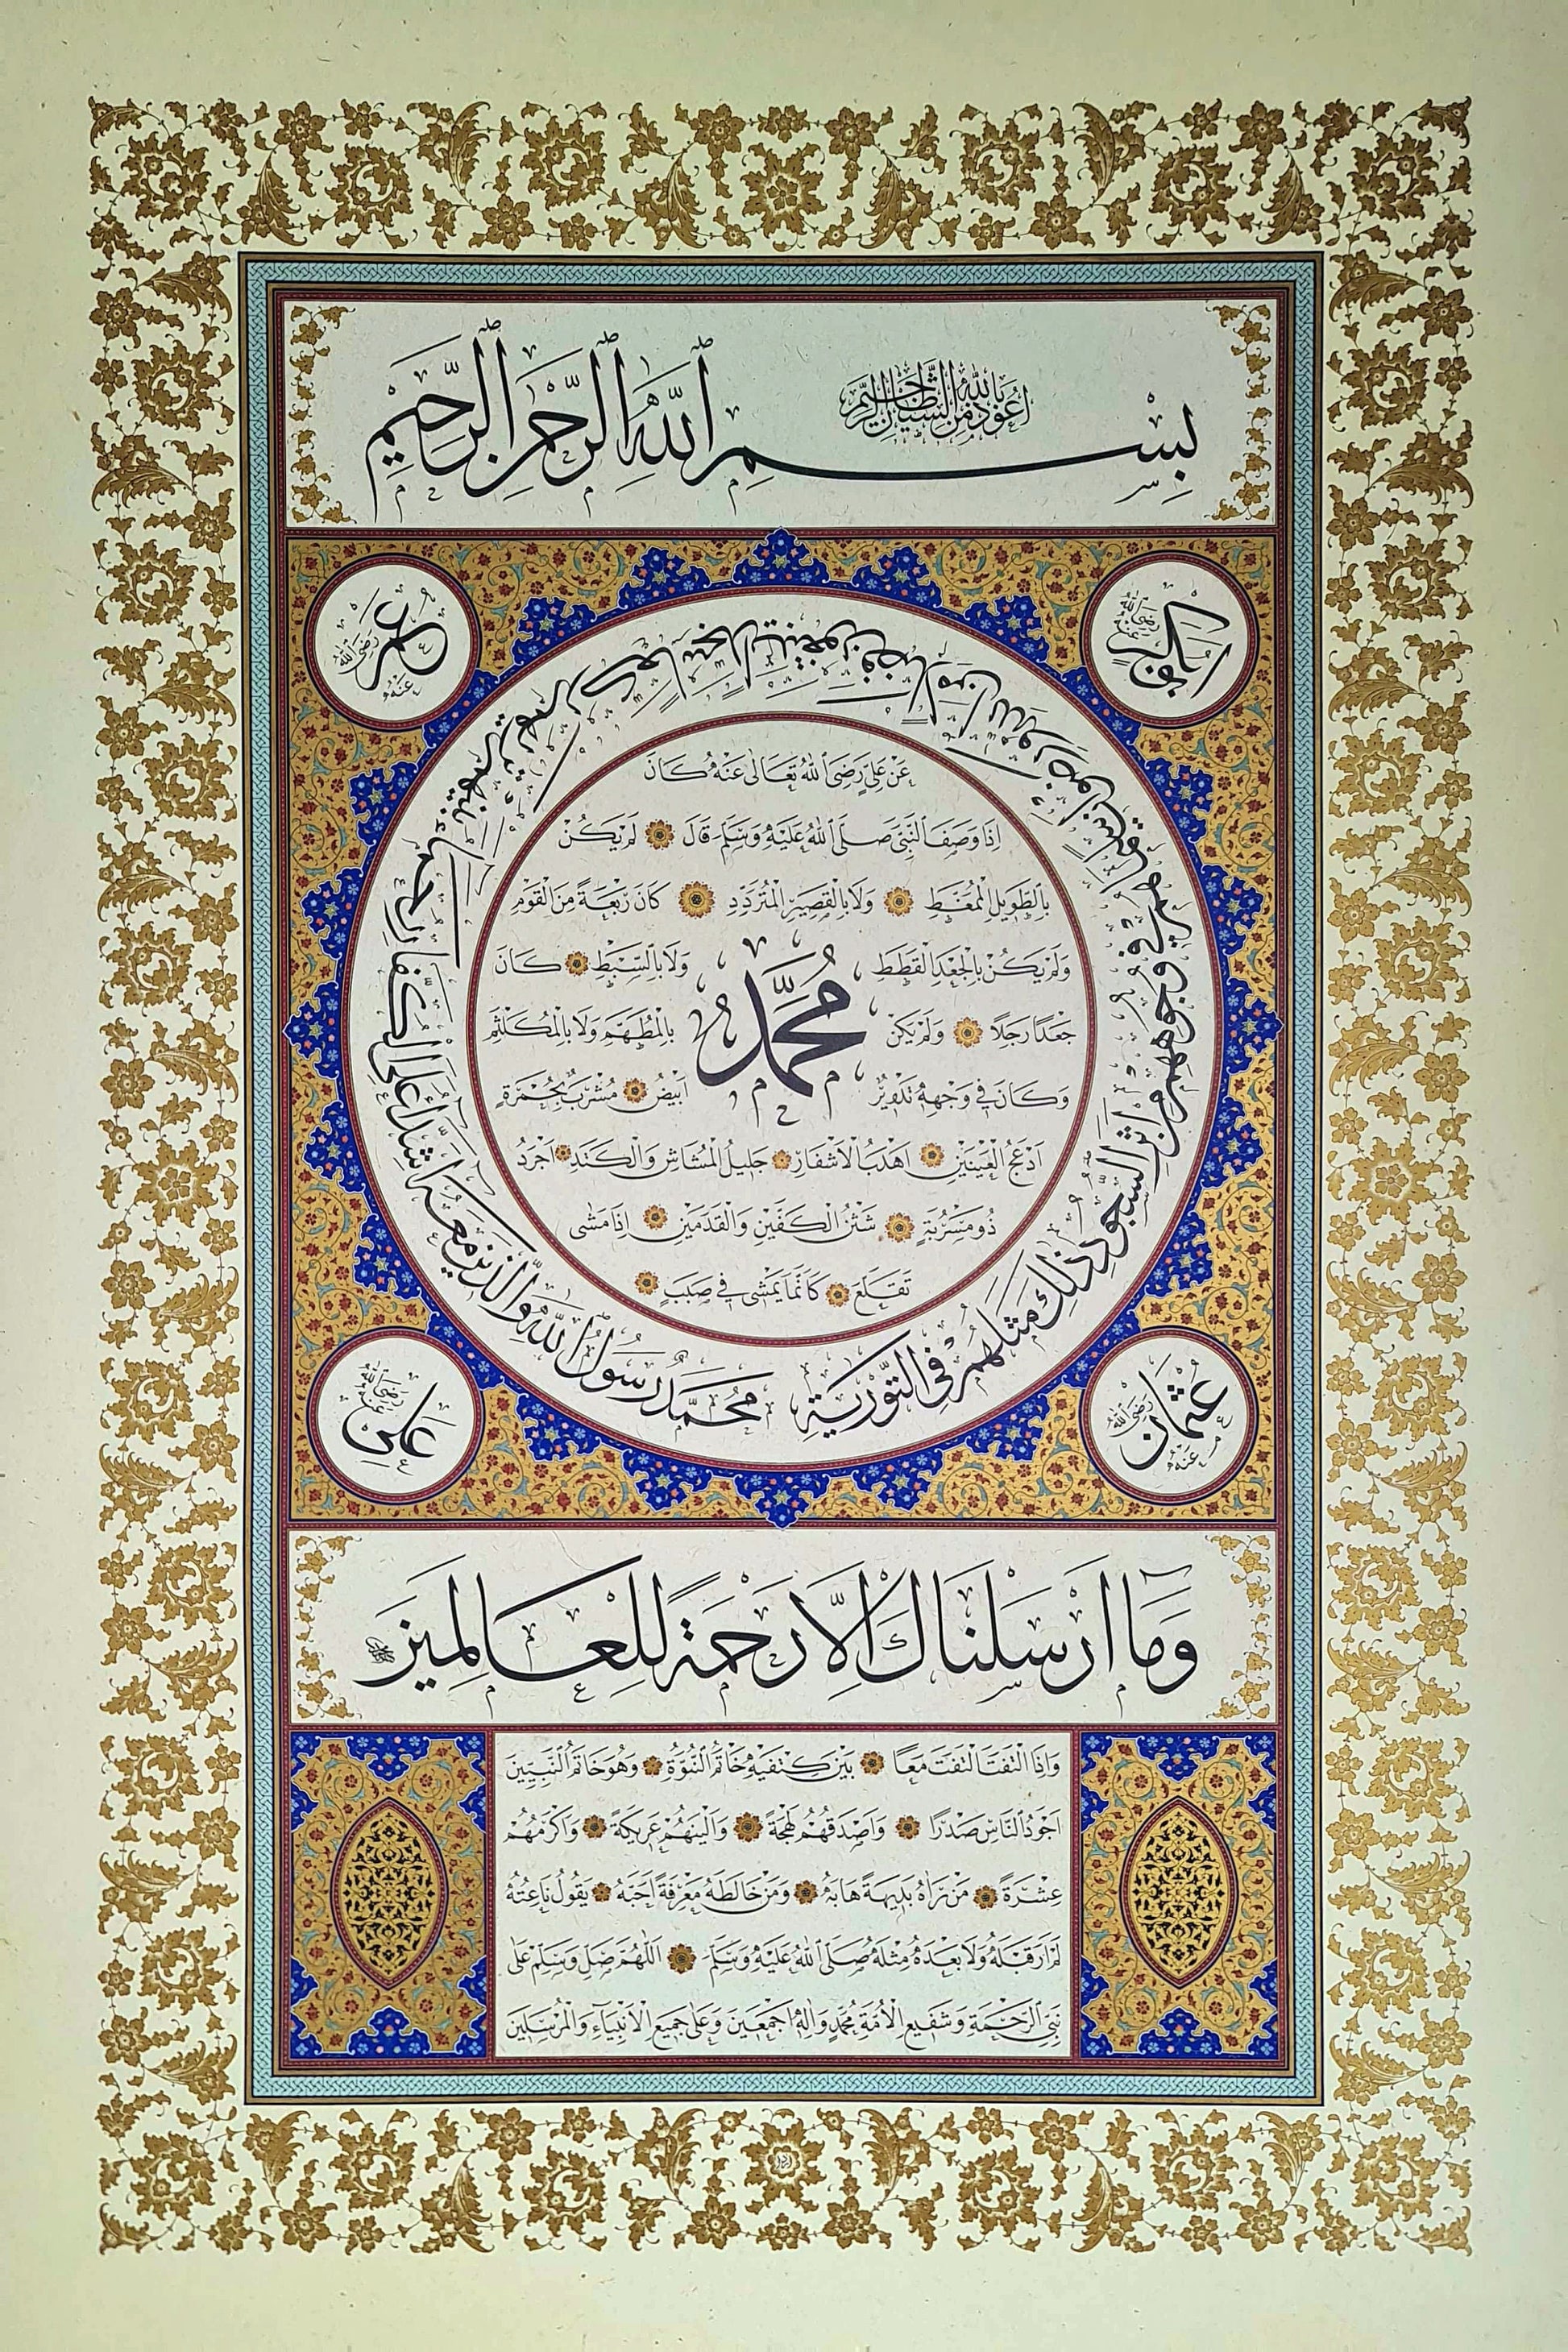 اعوذ بالله من الشيطان الرجيم
بِسْمِ اللّٰهِ الرَّحْمٰنِ الرَّحِيمِ
ابوبكر رضى الله عنه
عمر رَضِىَ اللّٰه عَنْهُ
مُحَمَّدٌ رَسُولُ اللّٰهِ وَالَّذِينَ مَعَهُ اَشِدَّاءُ عَلَى الْكُفَّارِ رُحَمَاءُ بَيْنَهُمْ تَرٰيهُمْ رُكَّعًا سُجَّدًا يَبْتَغُونَ فَضْلًا مِنَ اللّٰهِ وَرِضْوَانًا سِيمَاهُمْ فِى وُجُوهِهِمْ مِنْ اَثَرِ السُّجُودِ ذٰلِكَ مَثَلُهُمْ فِى التَّوْرٰيةِ
عَنْ عَلِىٍّ رَضِىَ اللّٰهُ تَعَالٰى عَنْهُ كَانَ
اِذَا وَصَفَ النَّبِىَّ صَلَّى اللّٰهُ عَلَيْهِ وَسَلَّمَ قَالَ لَمْ يَكُنْ
بِالطَّوِيلِ الْمُمَّغَطِ وَلَا بِالْقَصِيرِ الْمُتَرَدِّدِ كَانَ رَبْعَةً مِنَ الْقَوْمِ
وَلَمْ يَكُنْ بِالْجَعْدِ الْقَطَطِ وَلَا بِالسَّبْطِ كَانَ
جَعْدًا رَجِلًا وَلَمْ يَكُنْ بِالْمُطَهَّمِ وَلَا بِالْمُكَلْثَمِ
مُحَمَّد
وَكَانَ فِى وَجْهِهِ تَدْوِيرٌ اَبْيَضُ مُشْرَبٌ بِحُمْرَةٍ
اَدْعَجُ الْعَيْنَيْنِ اَهْدَبُ الْاَشْفَارِ جَلِيلُ الْمُشَاشِ وَالْكَتَدِ اَجْرَدُ
ذُو مَسْرُبَةٍ شَثْنُ الْكَفَّيْنِ وَالْقَدَمَيْنِ اِذَا مَشٰى
تَقَلَّعَ كَاَنَّمَا يَمْشِى فِى صَبَبٍ
عُثْمَان رَضِىَ اللّٰه عَنْهُ
على رضى الله عنه
وَمَا اَرْسَلْنَاكَ اِلَّا رَحْمَةً لِلْعَالَمِينَ
وَاِذَا الْتَفَتَ الْتَفَتَ مَعًا بَيْنَ كَتِفَيْهِ خَاتَمُ النُّبُوَّةِ وَهُوَ خَاتَمُ النَّبِيِّينَ
اَجْوَدُ النَّاسِ صَدْرًا وَاَصْدَقُهُمْ لَهْجَةً وَاَلْيَنُهُمْ عَرِيكَةً وَاَكْرَمُهُمْ
عِشْرَةً مَنْ رَاٰهُ بَدِيهَةً هَابَهُ وَمَنْ خَالَطَهُ مَعْرِفَةً اَحَبَّهُ يَقُولُ نَاعِتُهُ
لَمْ اَرَ قَبْلَهُ وَلَا بَعْدَهُ مِثْلَهُ صَلَّى اللّٰهُ عَلَيْهِ وَسَلَّمَ اَللّٰهُمَّ صَلِّ وَسَلِّمْ عَلٰى
نَبِىِّ الرَّحْمَةِ وَشَفِيعِ الْاُمَّةِ مُحَمَّدٍ وَاٰلِهِ اَجْمَعِينَ وَعَلٰى جَمِيعِ الْاَنْبِيَاءِ وَالْمُرْسَلِينَ